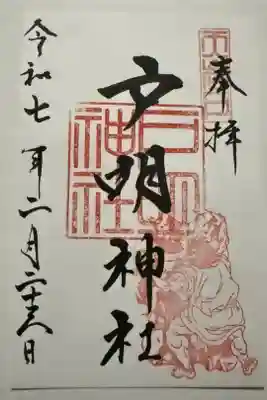 奉拝
戸明神社
戸明神社
令和七年二月二十日